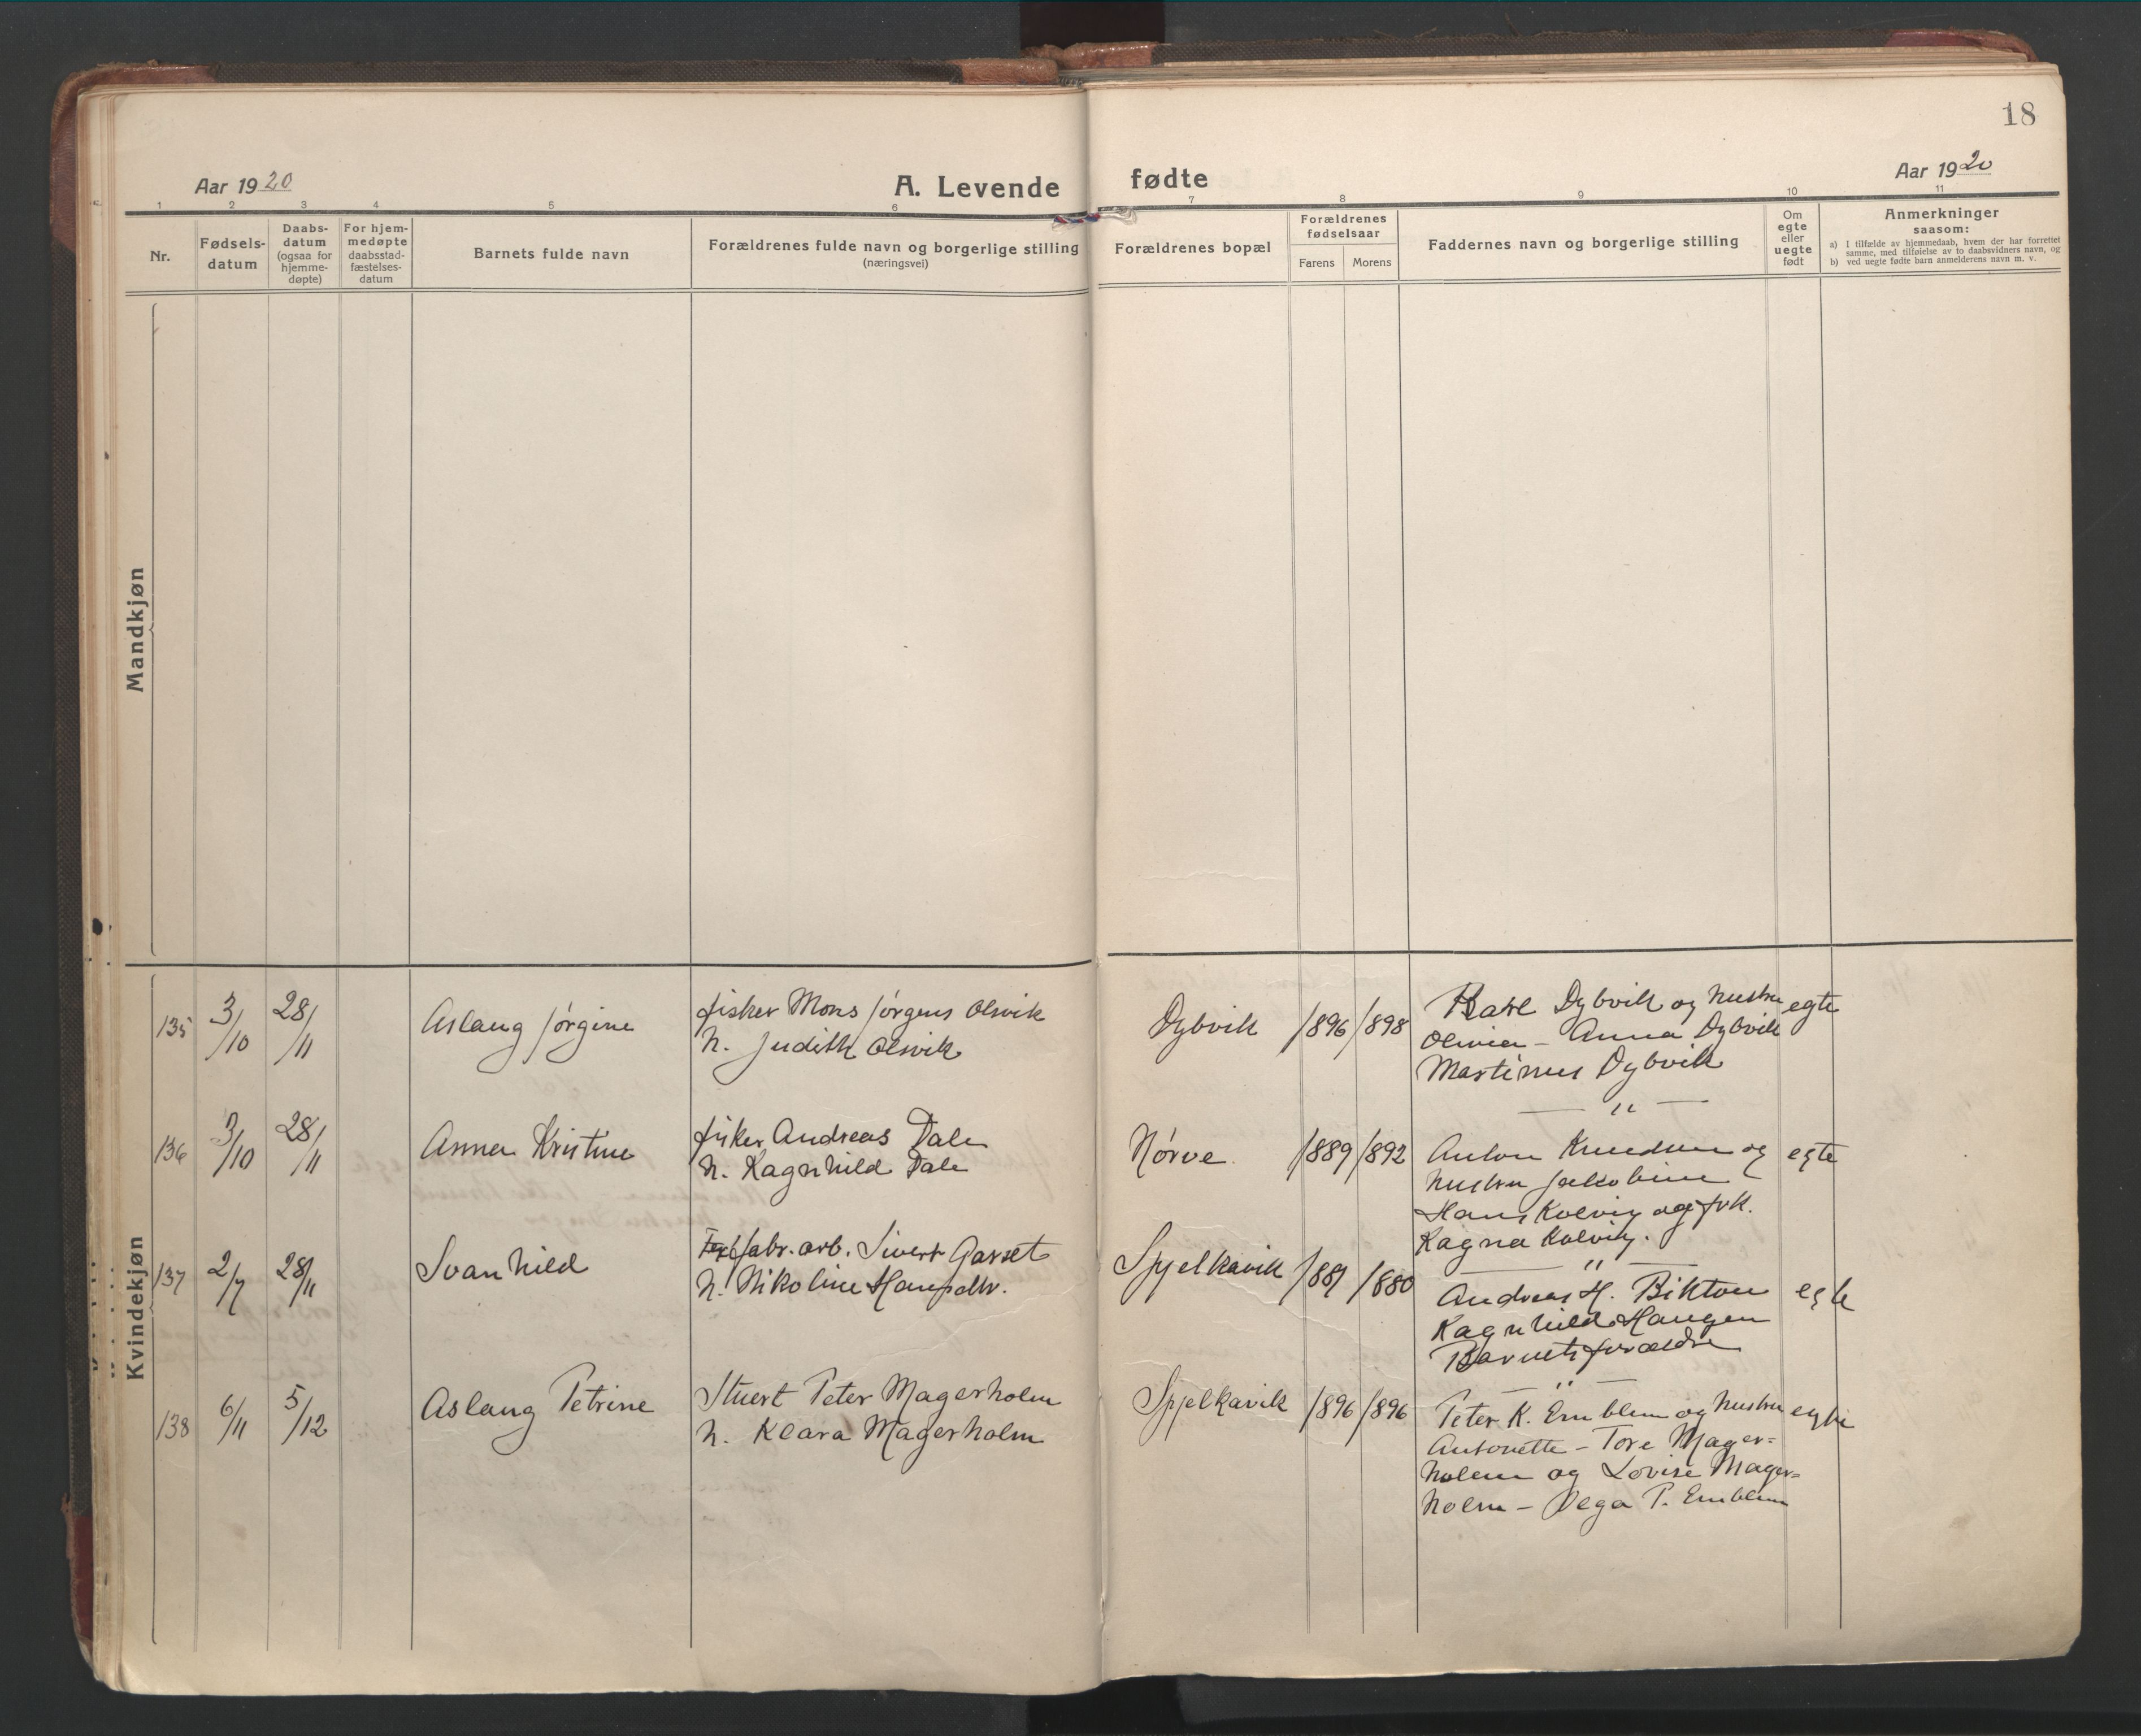 18
Aar 1920
A. Levende fødte
Aar 1920
1 2 3 4 5 6 7 8 9 10 11
Nr.
Fødsels-
datum
Daabs-
datum
(ogsaa for
hjemme-
døpte)
For hjem-
medøpte
daabsstad-
fæstelses-
datum
Barnets fulde navn
Forældrenes fulde navn og borgerlige stilling
(næringsvei)
Forældrenes bopæl
Forældrenes
fødselsaar
Farens Morens
Faddernes navn og borgerlige stilling
Om
egte
eller
uegte
født
Anmerkninger
saasom:
a) I tilfælde av hjemmedaab, hvem der har forrettet
samme, med tilføielse av to daabsvidners navn, og
b) ved uegte fødte barn anmelderens navn m. v.
Mandkjøn
Kvindekjøn
135 3/10 28/11 Aslaug Jørgine
fisker Mons Jørgens Olsvik
h. Judith Olsvik
Dybvik 1896 1898
Karl Dybvik og hustru egte
Olivia - Anna Dybvik
Martinus Dybvik
— " —
136 3/10 28/11 Anna Kristine
fisker Andreas Dale
h. Ragnhild Dale
Nørve 1889 1892
Anton Knudsen og egte
hustru Jakobine
Hans Kolvig og frk.
Ragna Kolvig.
— " —
137 2/7 28/11 Svanhild
fabr. arb. Sivert Gasset
h. Nikoline Hansdtr.
Spjelkavik 1881 1880
Andreas H. egte
Ragnhild Haugen
Barnets forældre
— " —
138 6/11 5/12 Aslaug Petrine
Stuert Peter Magerholm
h. Klara Magerholm
Spjelkavik 1896 1896
Peter K. Emblem og hustru egte
Antonette - Tore Mager=
holm og Lovise Mager=
holm - Olga P. Emblem